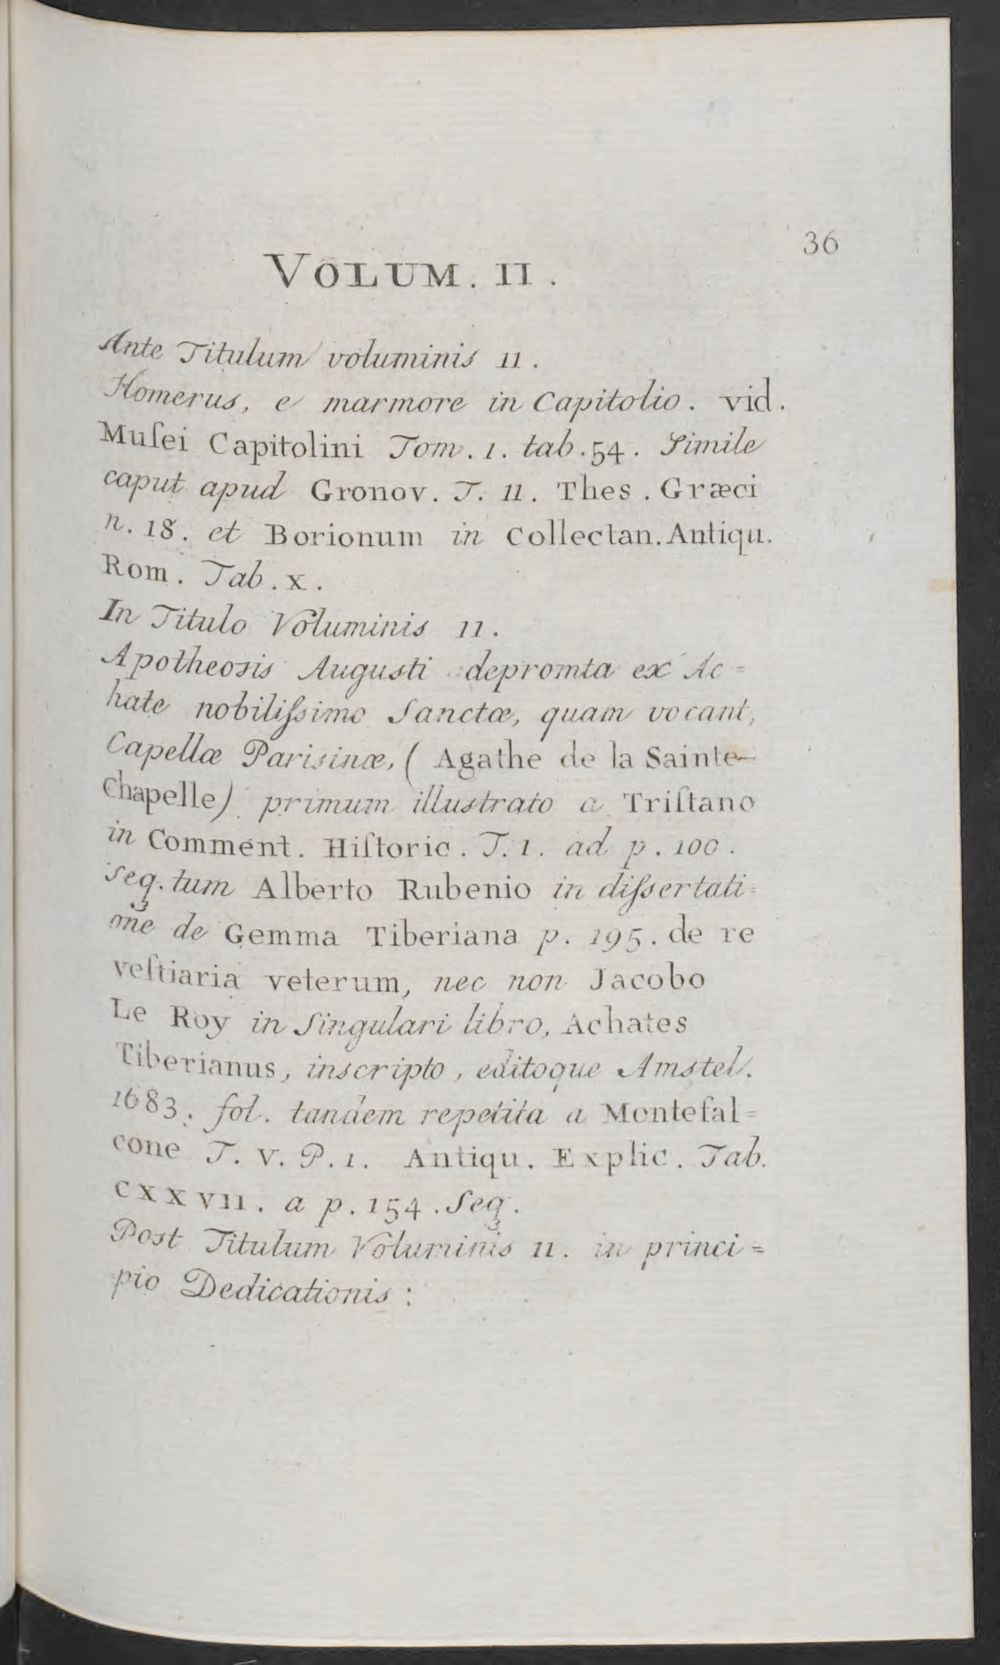 36
VOLUM. II.
Ante Titulum voluminis 11.
Homerus, e marmore in Capitolio. vid.
Muſei Capitolini Tom. 1. tab. 54. Simile
caput apud Gronov. T. 11. Thes. Græci
n. 18. et Borionum in Collectan. Antiqu.
Rom. Tab. x.
In Titulo Voluminis 11.
Apotheosis Augusti depromta ex Ac=
hate nobiliſsimo Sanctæ, quam vocant,
Capellæ Parisinæ, ( Agathe de la Sainte-
Chapelle) primum illustrato a Triſtano
in Comment. Hiſtoric. T. 1. ad p. 100.
Seq. tum Alberto Rubenio in diſsertati=
one de Gemma Tiberiana p. 195. de re
veſtiaria veterum, nec non Jacobo
Le Roy in Singulari libro, Achates
Tiberianus, inscripto, editoque Amstel.
1683. fol. tandem repetita a Montefal=
cone T. V. P. 1. Antiqu. Explic. Tab.
CXXVII. a p. 154. Seq.
Post Titulum Voluminis 11. in princi=
pio Dedicationis :